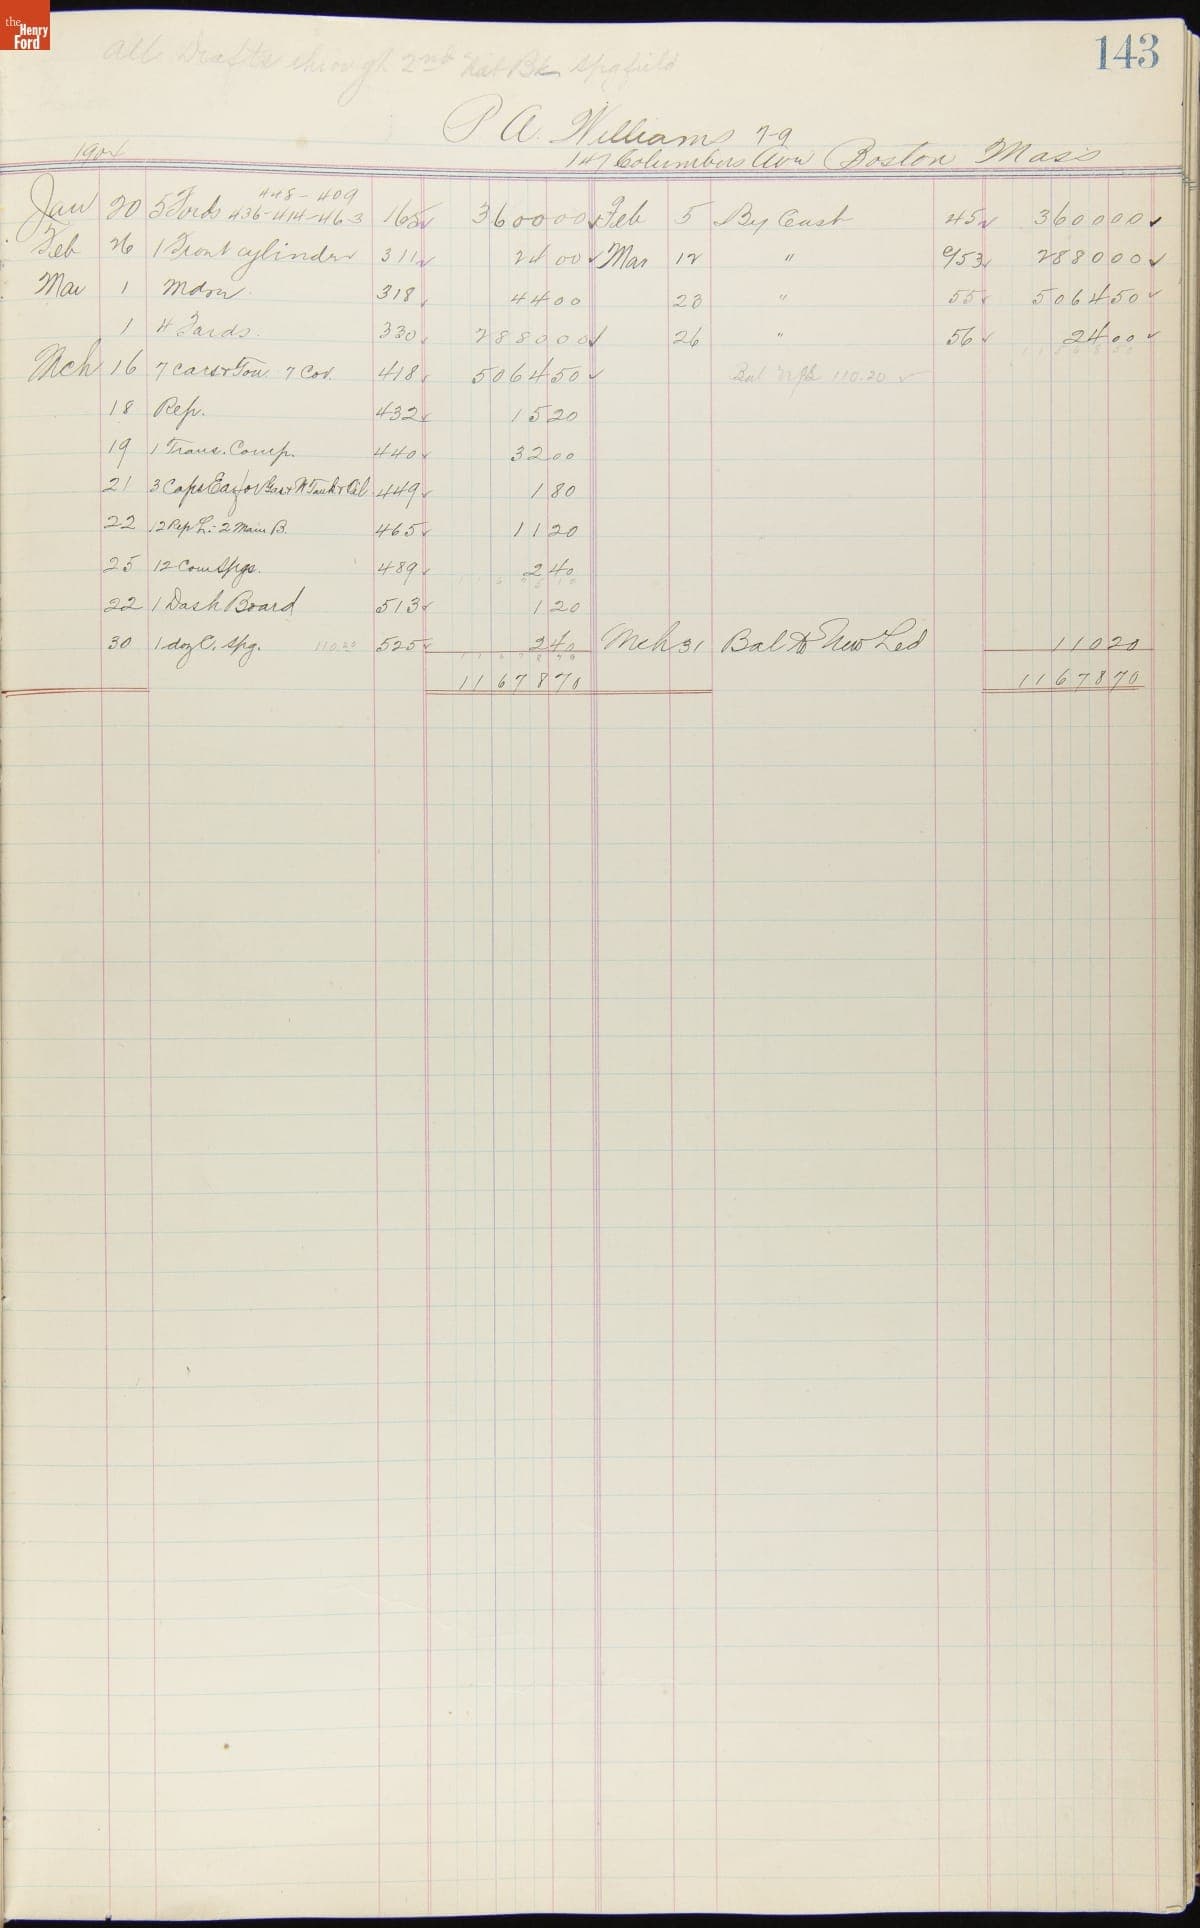 the Henry Ford
143
All Drafts through 2nd Nat Bk Spgfield
P A. Williams 7-9
1904 147 Columbus Ave Boston Mass
448-409
Jan 20 5 Fords 436-414-463 165 360000 Feb 5 By Cash 45 360000
Feb 26 1 Front cylinder 311 2400 Mar 12 " 53 288000
Mar 1 Mdse 318 4400 23 " 55 506450
1 4 Fords 330 288000 26 " 56 2400
Mch 16 7 cars & Ton 7 Cov. 418 506450 Bal 110.20
18 Rep. 432 1520
19 1 Trans. Comp. 440 3200
21 3 Caps Ea for Gas & W Tank & Oil 449 180
22 12 Rep L: 2 Main B. 465 1120
25 12 Com Spgs. 489 240
22 1 Dash Board 513 120
30 1 doz C. Spg. 110.20 525 240 Mch 31 Bal to New Led 11020
1167870 1167870